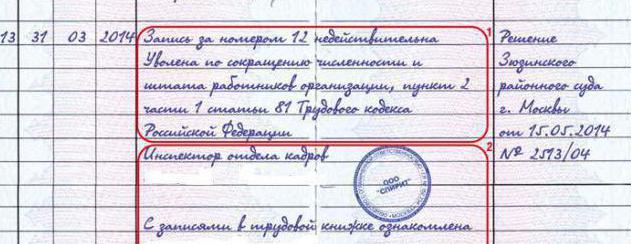 13 31 03 2014 Запись за номером 12 недействительна
Уволена по сокращению численности и
штата работников организации, пункт 2
части 1 статьи 81 Трудового кодекса
Российской Федерации
1
Решение
Зюзинского
районного суда
г. Москвы
от 15.05.2014
№ 2513/04
2
Инспектор отдела кадров
ООО
"СПИРИТ"
С записями в трудовой книжке ознакомлена